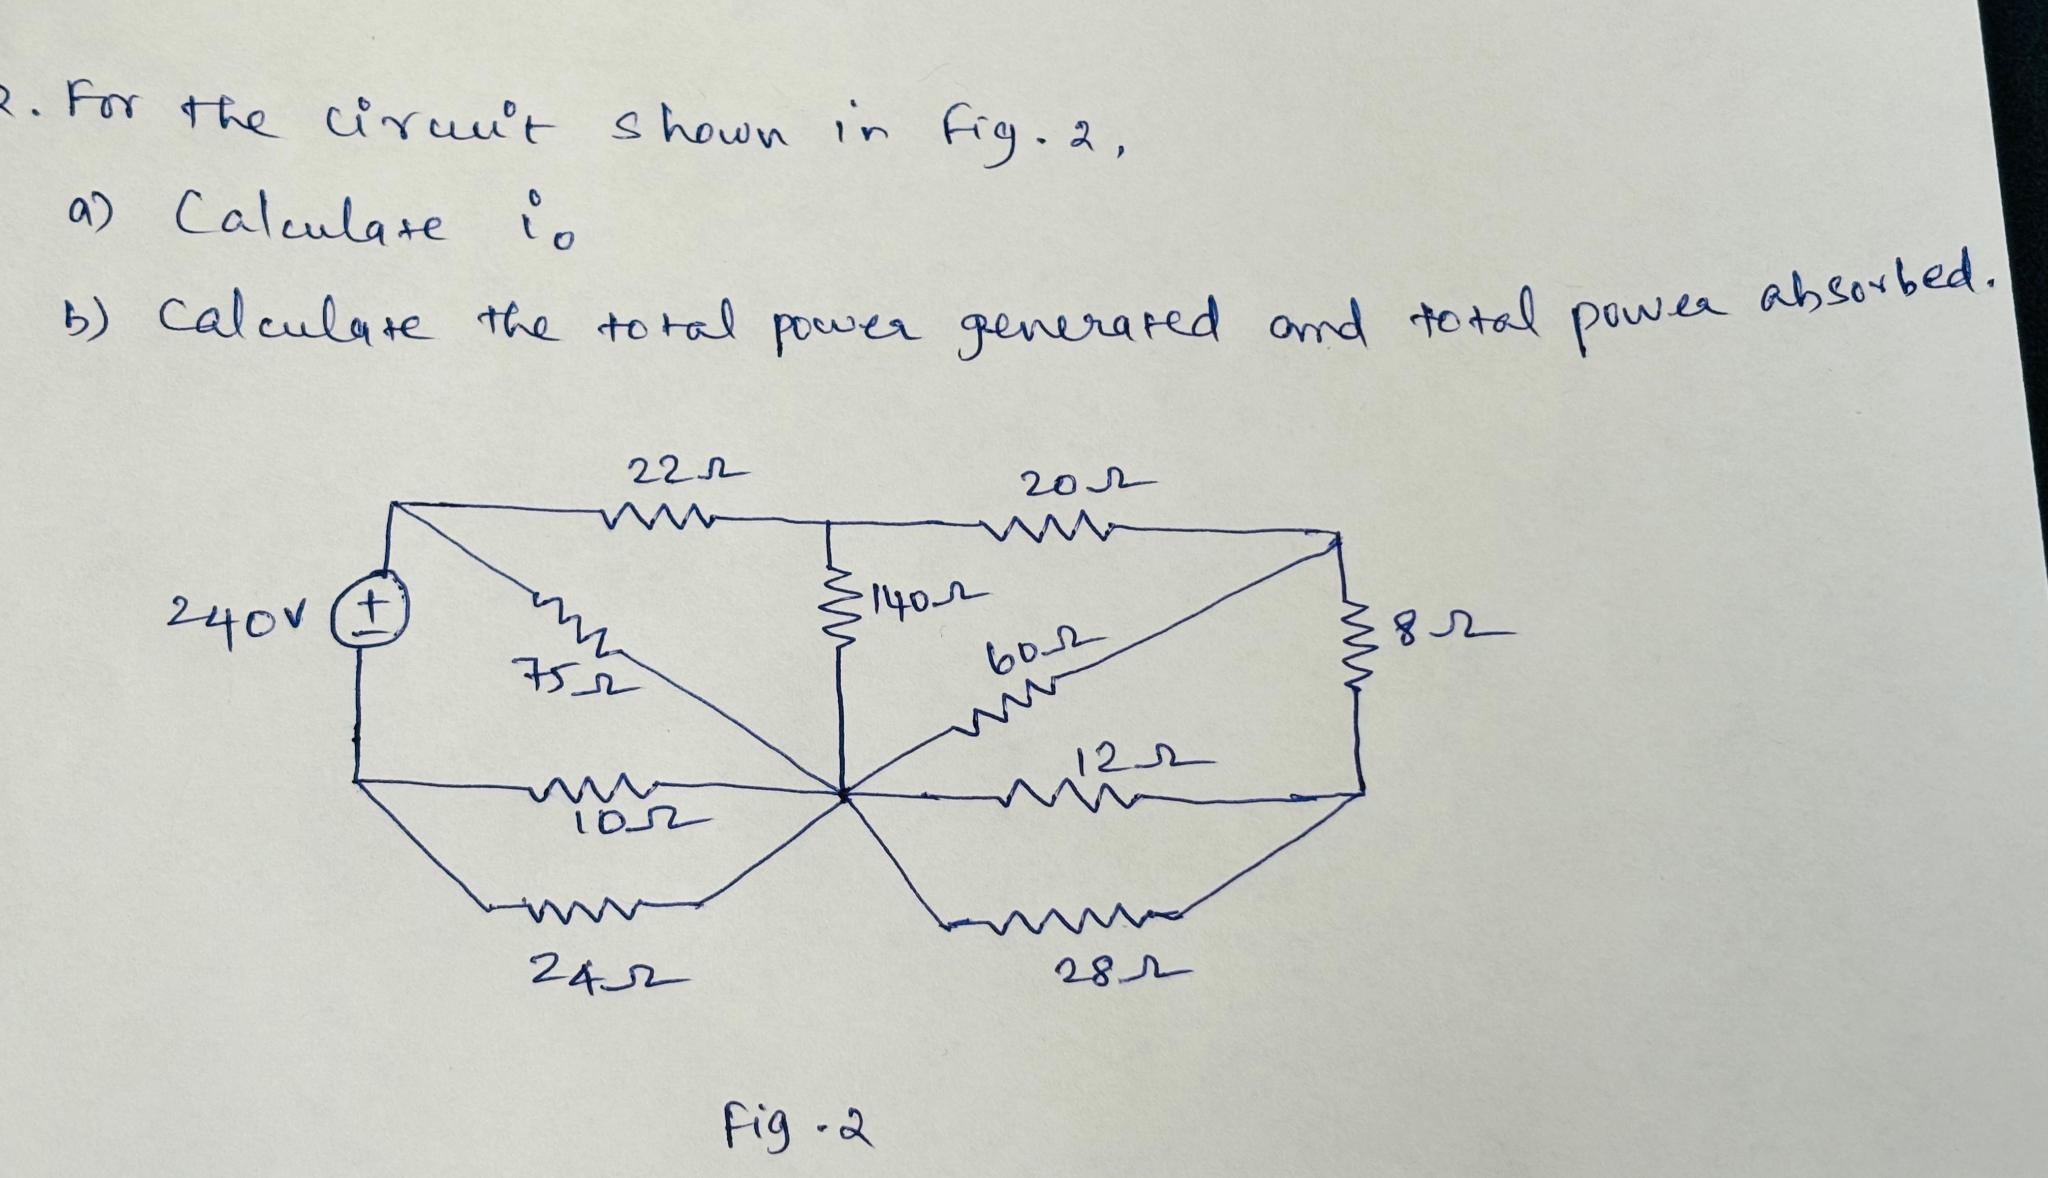 2. For the circuit shown in Fig. 2,
a) Calculate i₀
b) Calculate the total power generated and total power absorbed.
22Ω
20Ω
240V
+
140Ω
60Ω
8Ω
75Ω
12Ω
10Ω
24Ω
28Ω
Fig. 2